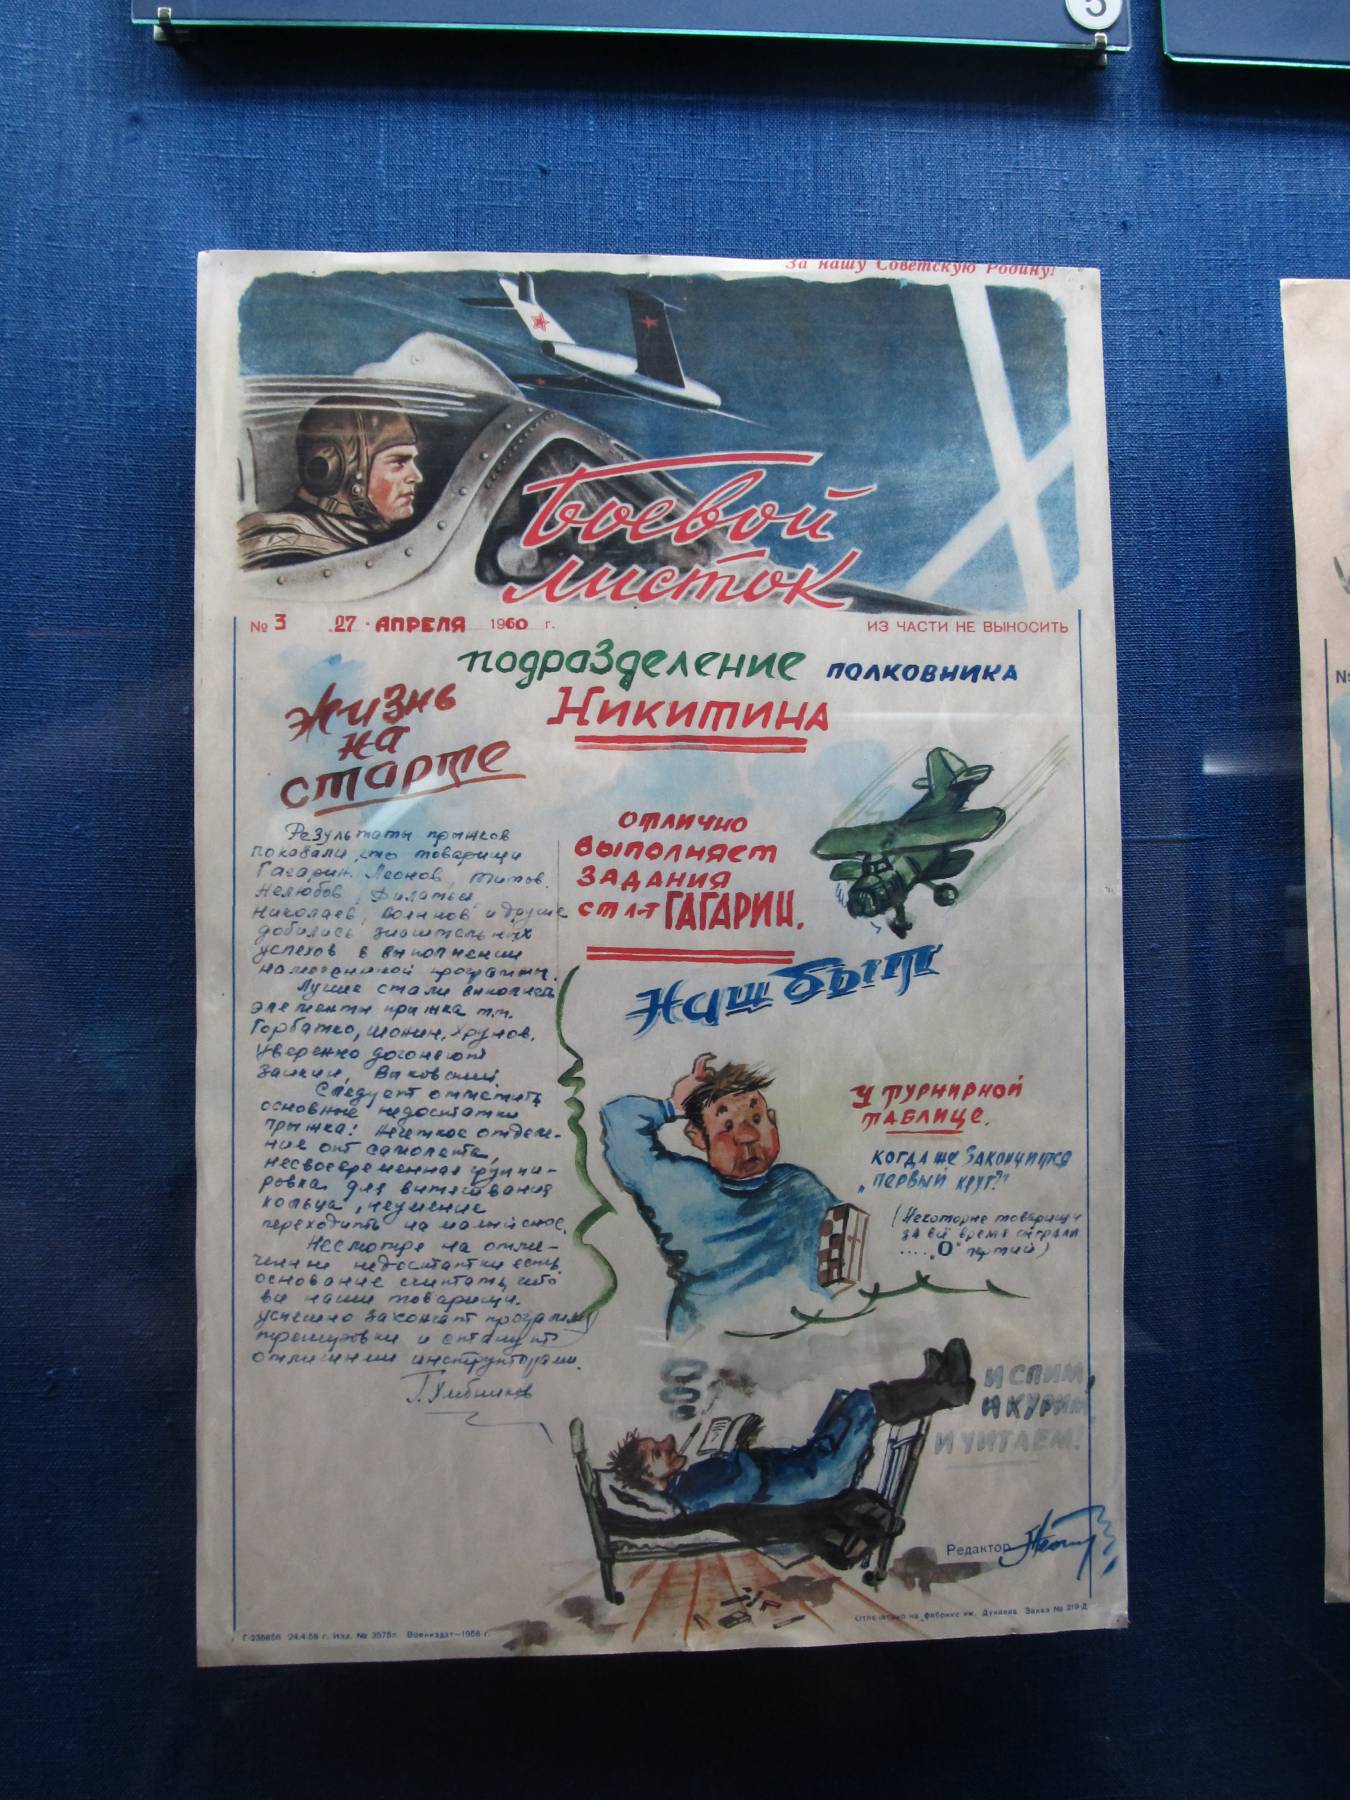 5
За нашу Советскую Родину!
Боевой
листок
№ 3 27 • АПРЕЛЯ 1960 г.
ИЗ ЧАСТИ НЕ ВЫНОСИТЬ
№
подразделение полковника
Никитина
Жизнь
на
старте
Результаты прыжков
показали, что товарищи
Гагарин, Леонов, Титов,
Нелюбов, Филатьев,
Николаев, Волынов и другие
добились значительных
успехов в выполнении
намеченной программы.
Лучше стали выполнять
элементы прыжка т.т.
Горбатко, Шонин, Хрунов.
Уверенно догоняют
Заикин,
Следует отметить
основные недостатки
прыжка: нечеткое отделе-
ние от самолета,
несвоевременная группи-
ровка для вытягивания
кольца, неумение
переходить на малый снос.
Несмотря на отме-
ченные недостатки есть
основание считать, что
все наши товарищи
успешно закончат программу
тренировки и станут
отличными инструкторами.
Г. Хлебников
отлично
выполняет
задания
ст л-т ГАГАРИН.
Наш быт
У турнирной
таблице.
Когда же закончится
„первый круг?"
(Некоторые товарищи
за всё время сыграли
.... „О" партий)
И СПИМ,
И КУРИМ,
И ЧИТАЕМ!
Редактор
Отпечатано на фабрике им. Дунаева Заказ № 219-Д
Г-235856 24.4.58 г. Изд. № 3575п. Воениздат—1958 г.